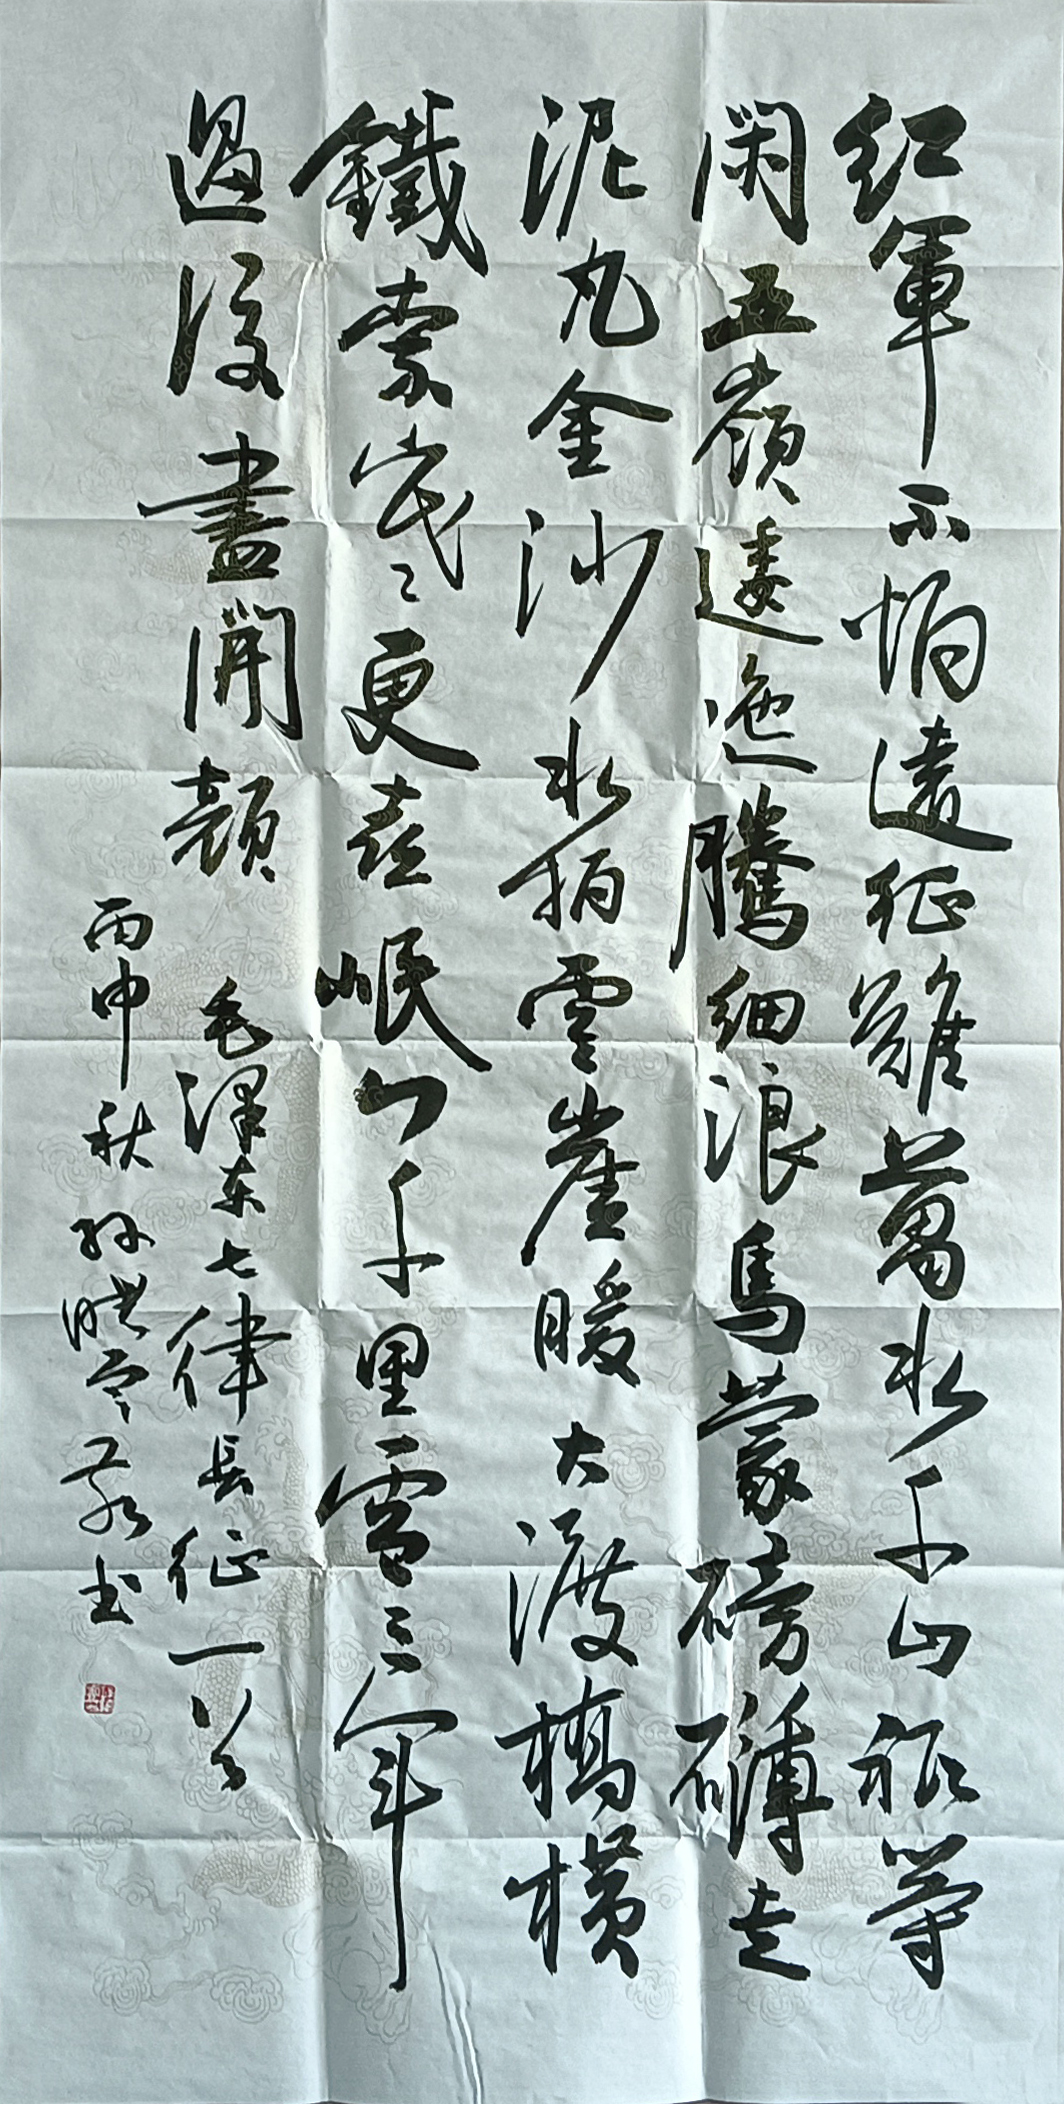 紅軍不怕遠征難萬水千山祇等
閑五嶺逶迤騰細浪烏蒙磅礴走
泥丸金沙水拍雲崖暖大渡橋橫
鐵索寒更喜岷山千里雪三軍
過後盡開顏
毛澤東七律長征一首
丙申秋孫书